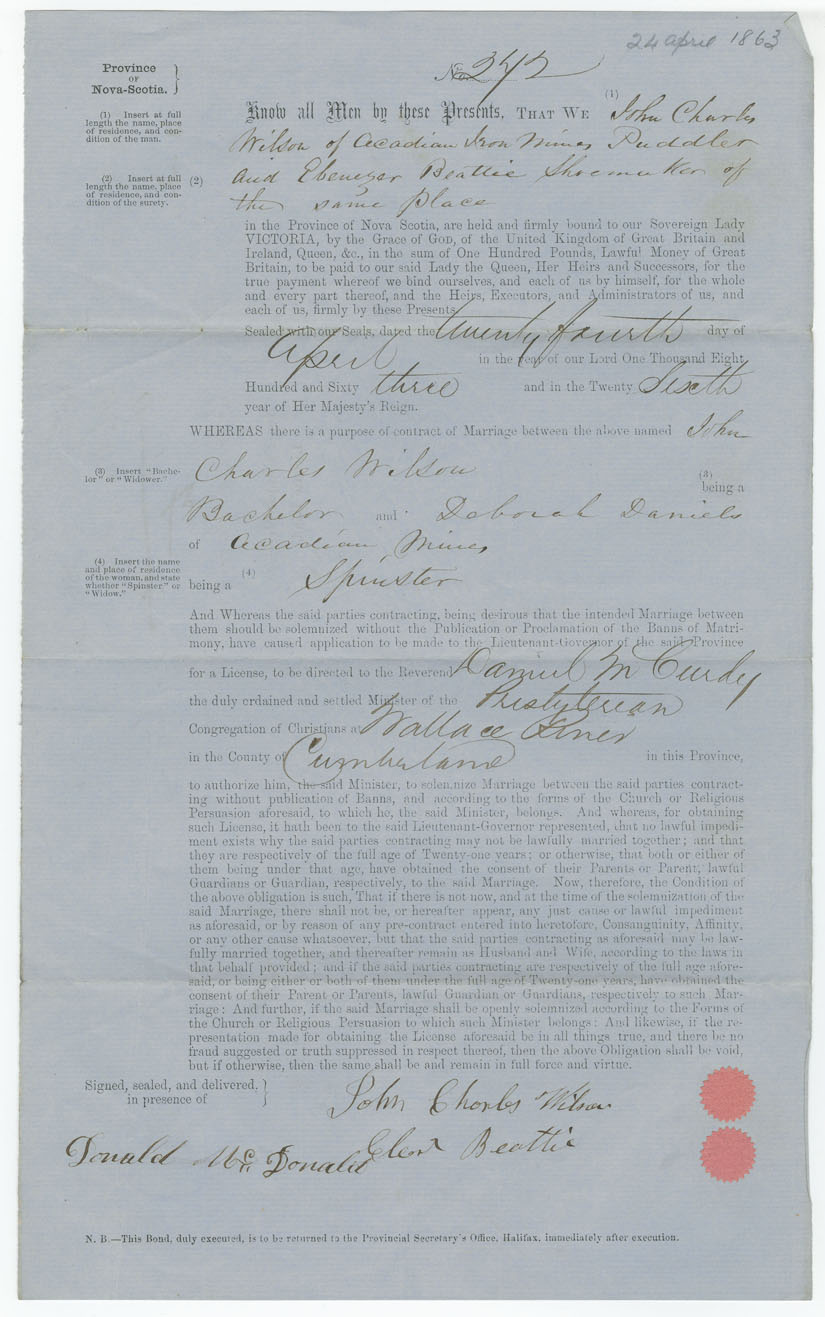 24 april 1863
Province
OF
Nova-Scotia.
No. 242
(1) Insert at full
length the name, place
of residence, and con-
dition of the man.
(1)
Know all Men by these Presents, THAT WE John Charles
Wilson of Acadian Iron Mines Puddler
(2) Insert at full
length the name, place
of residence, and con-
dition of the surety.
(2)
and Ebenezer Beattie Shoemaker of
the same place
in the Province of Nova Scotia, are held and firmly bound to our Sovereign Lady
VICTORIA, by the Grace of GOD, of the United Kingdom of Great Britain and
Ireland, Queen, &c., in the sum of One Hundred Pounds, Lawful Money of Great
Britain, to be paid to our said Lady the Queen, Her Heirs and Successors, for the
true payment whereof we bind ourselves, and each of us by himself, for the whole
and every part thereof, and the Heirs, Executors, and Administrators of us, and
each of us, firmly by these Presents.
Sealed with our Seals, dated the twenty fourth day of
April in the year of our Lord One Thousand Eight
Hundred and Sixty three and in the Twenty Sixth
year of Her Majesty's Reign.
WHEREAS there is a purpose of contract of Marriage between the above named John
(3) Insert "Bache-
lor" or "Widower."
Charles Wilson (3)
being a
Bachelor and Deborah Daniels
of Acadian Mines
(4) Insert the name
and place of residence
of the woman, and state
whether "Spinster" or
"Widow."
(4)
being a Spinster
And Whereas the said parties contracting, being desirous that the intended Marriage between
them should be solemnized without the Publication or Proclamation of the Banns of Matri-
mony, have caused application to be made to the Lieutenant-Governor of the said Province
for a License, to be directed to the Reverend Daniel McCurdy
the duly ordained and settled Minister of the Presbyterian
Congregation of Christians at Wallace River
in the County of Cumberland in this Province,
to authorize him, the said Minister, to solemnize Marriage between the said parties contract-
ing without publication of Banns, and according to the forms of the Church or Religious
Persuasion aforesaid, to which he, the said Minister, belongs. And whereas, for obtaining
such License, it hath been to the said Lieutenant-Governor represented, that no lawful impedi-
ment exists why the said parties contracting may not be lawfully married together; and that
they are respectively of the full age of Twenty-one years; or otherwise, that both or either of
them being under that age, have obtained the consent of their Parents or Parent, lawful
Guardians or Guardian, respectively, to the said Marriage. Now, therefore, the Condition of
the above obligation is such, That if there is not now, and at the time of the solemnization of the
said Marriage, there shall not be, or hereafter appear, any just cause or lawful impediment
as aforesaid, or by reason of any pre-contract entered into heretofore, Consanguinity, Affinity,
or any other cause whatsoever, but that the said parties contracting as aforesaid may be law-
fully married together, and thereafter remain as Husband and Wife, according to the laws in
that behalf provided; and if the said parties contracting are respectively of the full age afore-
said, or being either or both of them under the full age of Twenty-one years, have obtained the
consent of their Parent or Parents, lawful Guardian or Guardians, respectively to such Mar-
riage: And further, if the said Marriage shall be openly solemnized according to the Forms of
the Church or Religious Persuasion to which such Minister belongs: And likewise, if the re-
presentation made for obtaining the License aforesaid be in all things true, and there be no
fraud suggested or truth suppressed in respect thereof, then the above Obligation shall be void,
but if otherwise, then the same shall be and remain in full force and virtue.
Signed, sealed, and delivered,
in presence of
John Charles Wilson
Beattie
Donald McDonald
N. B.—This Bond, duly executed, is to be returned to the Provincial Secretary's Office, Halifax, immediately after execution.